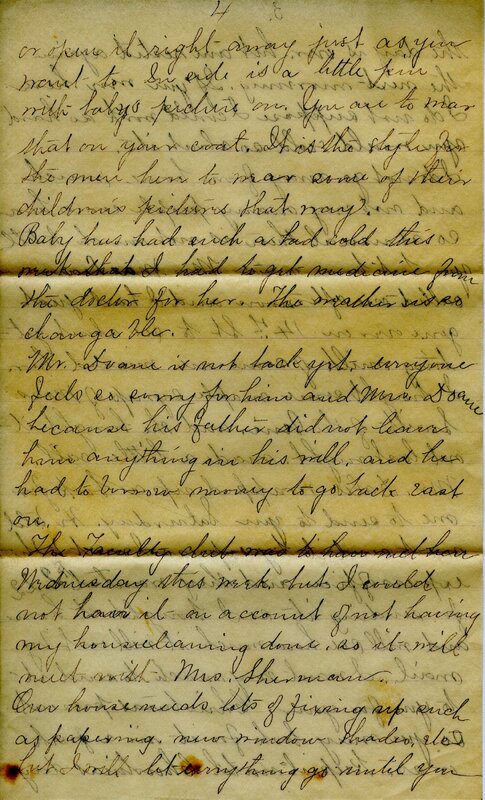 4
or open it right away just as you
want to. Inside is a little pin
with baby's picture on. You are to wear
that on your coat. It is the style for
the men here to wear some of their
children's pictures that way.
Baby has had such a bad cold this
week that I had to get medicine from
the doctor for her. The weather is so
changable.
Mr. Doane is not back yet everyone
feels so sorry for him and Mrs. Doane
because his father did not leave
him anything in his will, and he
had to borrow money to go back east
on.
The Faculty club was to have met here
Wednesday this week but I could
not have it on account of not having
my housecleaning done so it will
meet with Mrs. Sherman.
Our house needs lots of fixing up such
as papering new window shades, etc
but I will let everything go until you